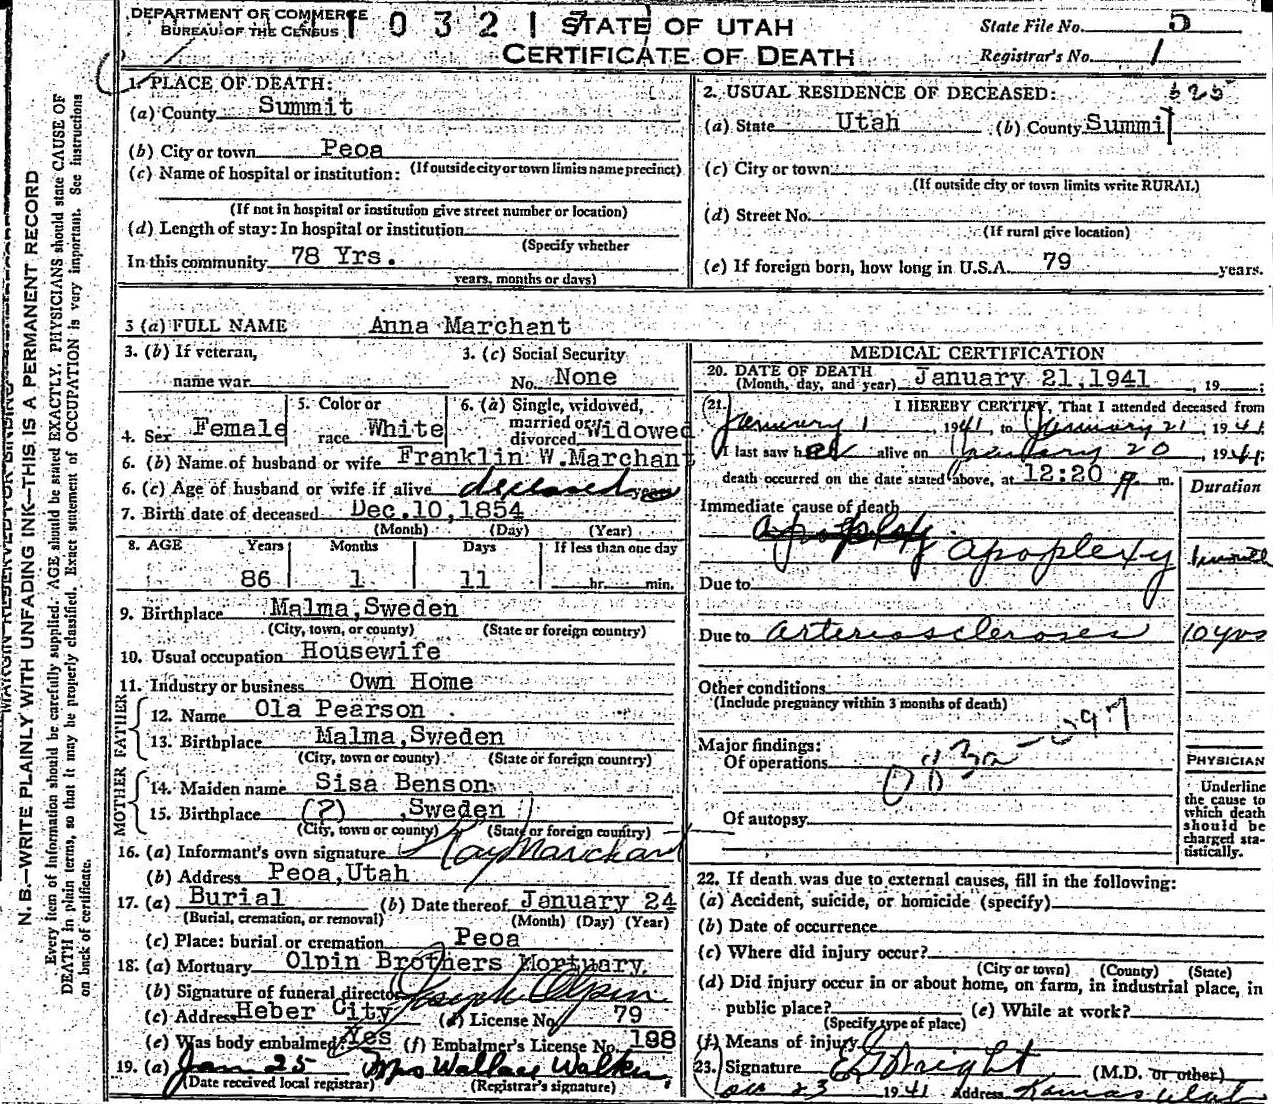 DEPARTMENT OF COMMERCE
BUREAU OF THE CENSUS
1 0 3 2 1
STATE OF UTAH
CERTIFICATE OF DEATH
State File No. 5
Registrar's No. 1
1. PLACE OF DEATH:
(a) County Summit
(b) City or town Peoa
(If outside city or town limits name precinct)
(c) Name of hospital or institution:
(If not in hospital or institution give street number or location)
(d) Length of stay: In hospital or institution
(Specify whether
In this community 78 Yrs.
years, months or days)
2. USUAL RESIDENCE OF DECEASED:
(a) State Utah (b) County Summit
(c) City or town
(If outside city or town limits write RURAL)
(d) Street No.
(If rural give location)
(e) If foreign born, how long in U.S.A. 79 years.
3 (a) FULL NAME Anna Marchant
3. (b) If veteran,
name war
3. (c) Social Security
No. None
4. Sex Female
5. Color or
race White
6. (a) Single, widowed,
married or
divorced Widowed
6. (b) Name of husband or wife Franklin W. Marchant
6. (c) Age of husband or wife if alive deceased years
7. Birth date of deceased Dec.10,1854
(Month) (Day) (Year)
8. AGE Years Months Days If less than one day
86 1 11 hr. min.
9. Birthplace Malma,Sweden
(City, town, or county) (State or foreign country)
10. Usual occupation Housewife
11. Industry or business Own Home
FATHER
12. Name Ola Pearson
13. Birthplace Malma,Sweden
(City, town or county) (State or foreign country)
MOTHER
14. Maiden name Sisa Benson
15. Birthplace (?) ,Sweden
(City, town or county) (State or foreign country)
16. (a) Informant's own signature Ray Marchant
(b) Address Peoa,Utah
17. (a) Burial (b) Date thereof January 24
(Burial, cremation, or removal) (Month) (Day) (Year)
(c) Place: burial or cremation Peoa
18. (a) Mortuary Olpin Brothers Mortuary
(b) Signature of funeral director Joseph Olpin
(c) Address Heber City (d) License No. 79
(e) Was body embalmed? Yes (f) Embalmer's License No. 188
19. (a) Jan 25 Mrs Wallace Walker
(Date received local registrar) (Registrar's signature)
MEDICAL CERTIFICATION
20. DATE OF DEATH
(Month, day, and year) January 21,1941, 19 ;
21. I HEREBY CERTIFY, That I attended deceased from
January 1, 1941, to January 21, 1941
I last saw her alive on January 20, 1941;
death occurred on the date stated above, at 12:20 P. m.
Duration
Immediate cause of death
apoplexy apoplexy
Due to
Due to arterioscleroses 10 yrs
Other conditions
(Include pregnancy within 3 months of death)
Major findings:
Of operations
Of autopsy
PHYSICIAN
Underline
the cause to
which death
should be
charged sta-
tistically.
22. If death was due to external causes, fill in the following:
(a) Accident, suicide, or homicide (specify)
(b) Date of occurrence
(c) Where did injury occur?
(City or town) (County) (State)
(d) Did injury occur in or about home, on farm, in industrial place, in
public place? (e) While at work?
(Specify type of place)
(f) Means of injury
23. Signature (M.D. or other)
23 1941 Address Kamas Utah
N. B.—WRITE PLAINLY WITH UNFADING INK—THIS IS A PERMANENT RECORD
Every item of information should be carefully supplied. AGE should be stated EXACTLY. PHYSICIANS should state CAUSE OF
DEATH in plain terms, so that it may be properly classified. Exact statement of OCCUPATION is very important. See instructions
on back of certificate.